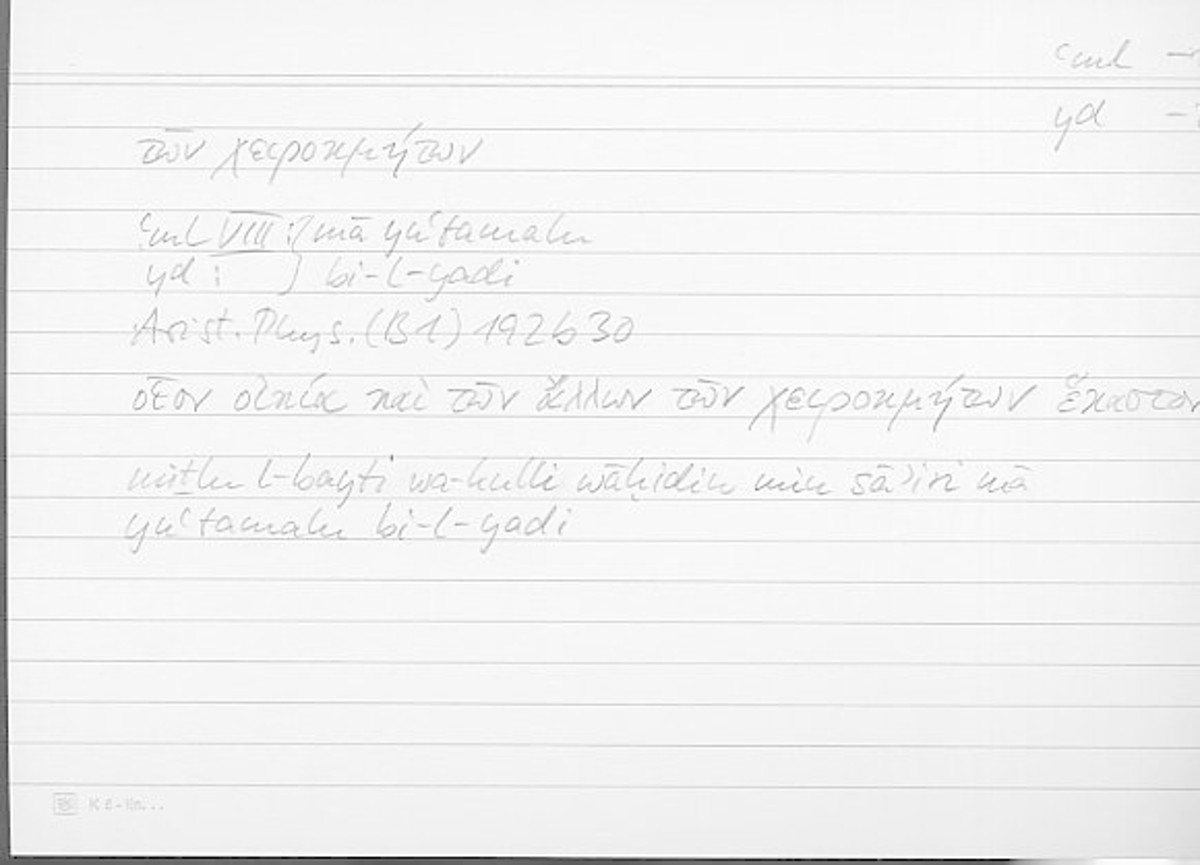 ʿml →
yd →
τῶν χειροκμήτων
ʿml VIII : } mā yuʿtamalu
yd : } bi-l-yadi
Arist. Phys. (B 1) 192b30
οἷον οἰκία καὶ τῶν ἄλλων τῶν χειροκμήτων ἕκαστον
miṯlu l-bayti wa-kulli wāḥidin min sāʾiri mā
yuʿtamalu bi-l-yadi